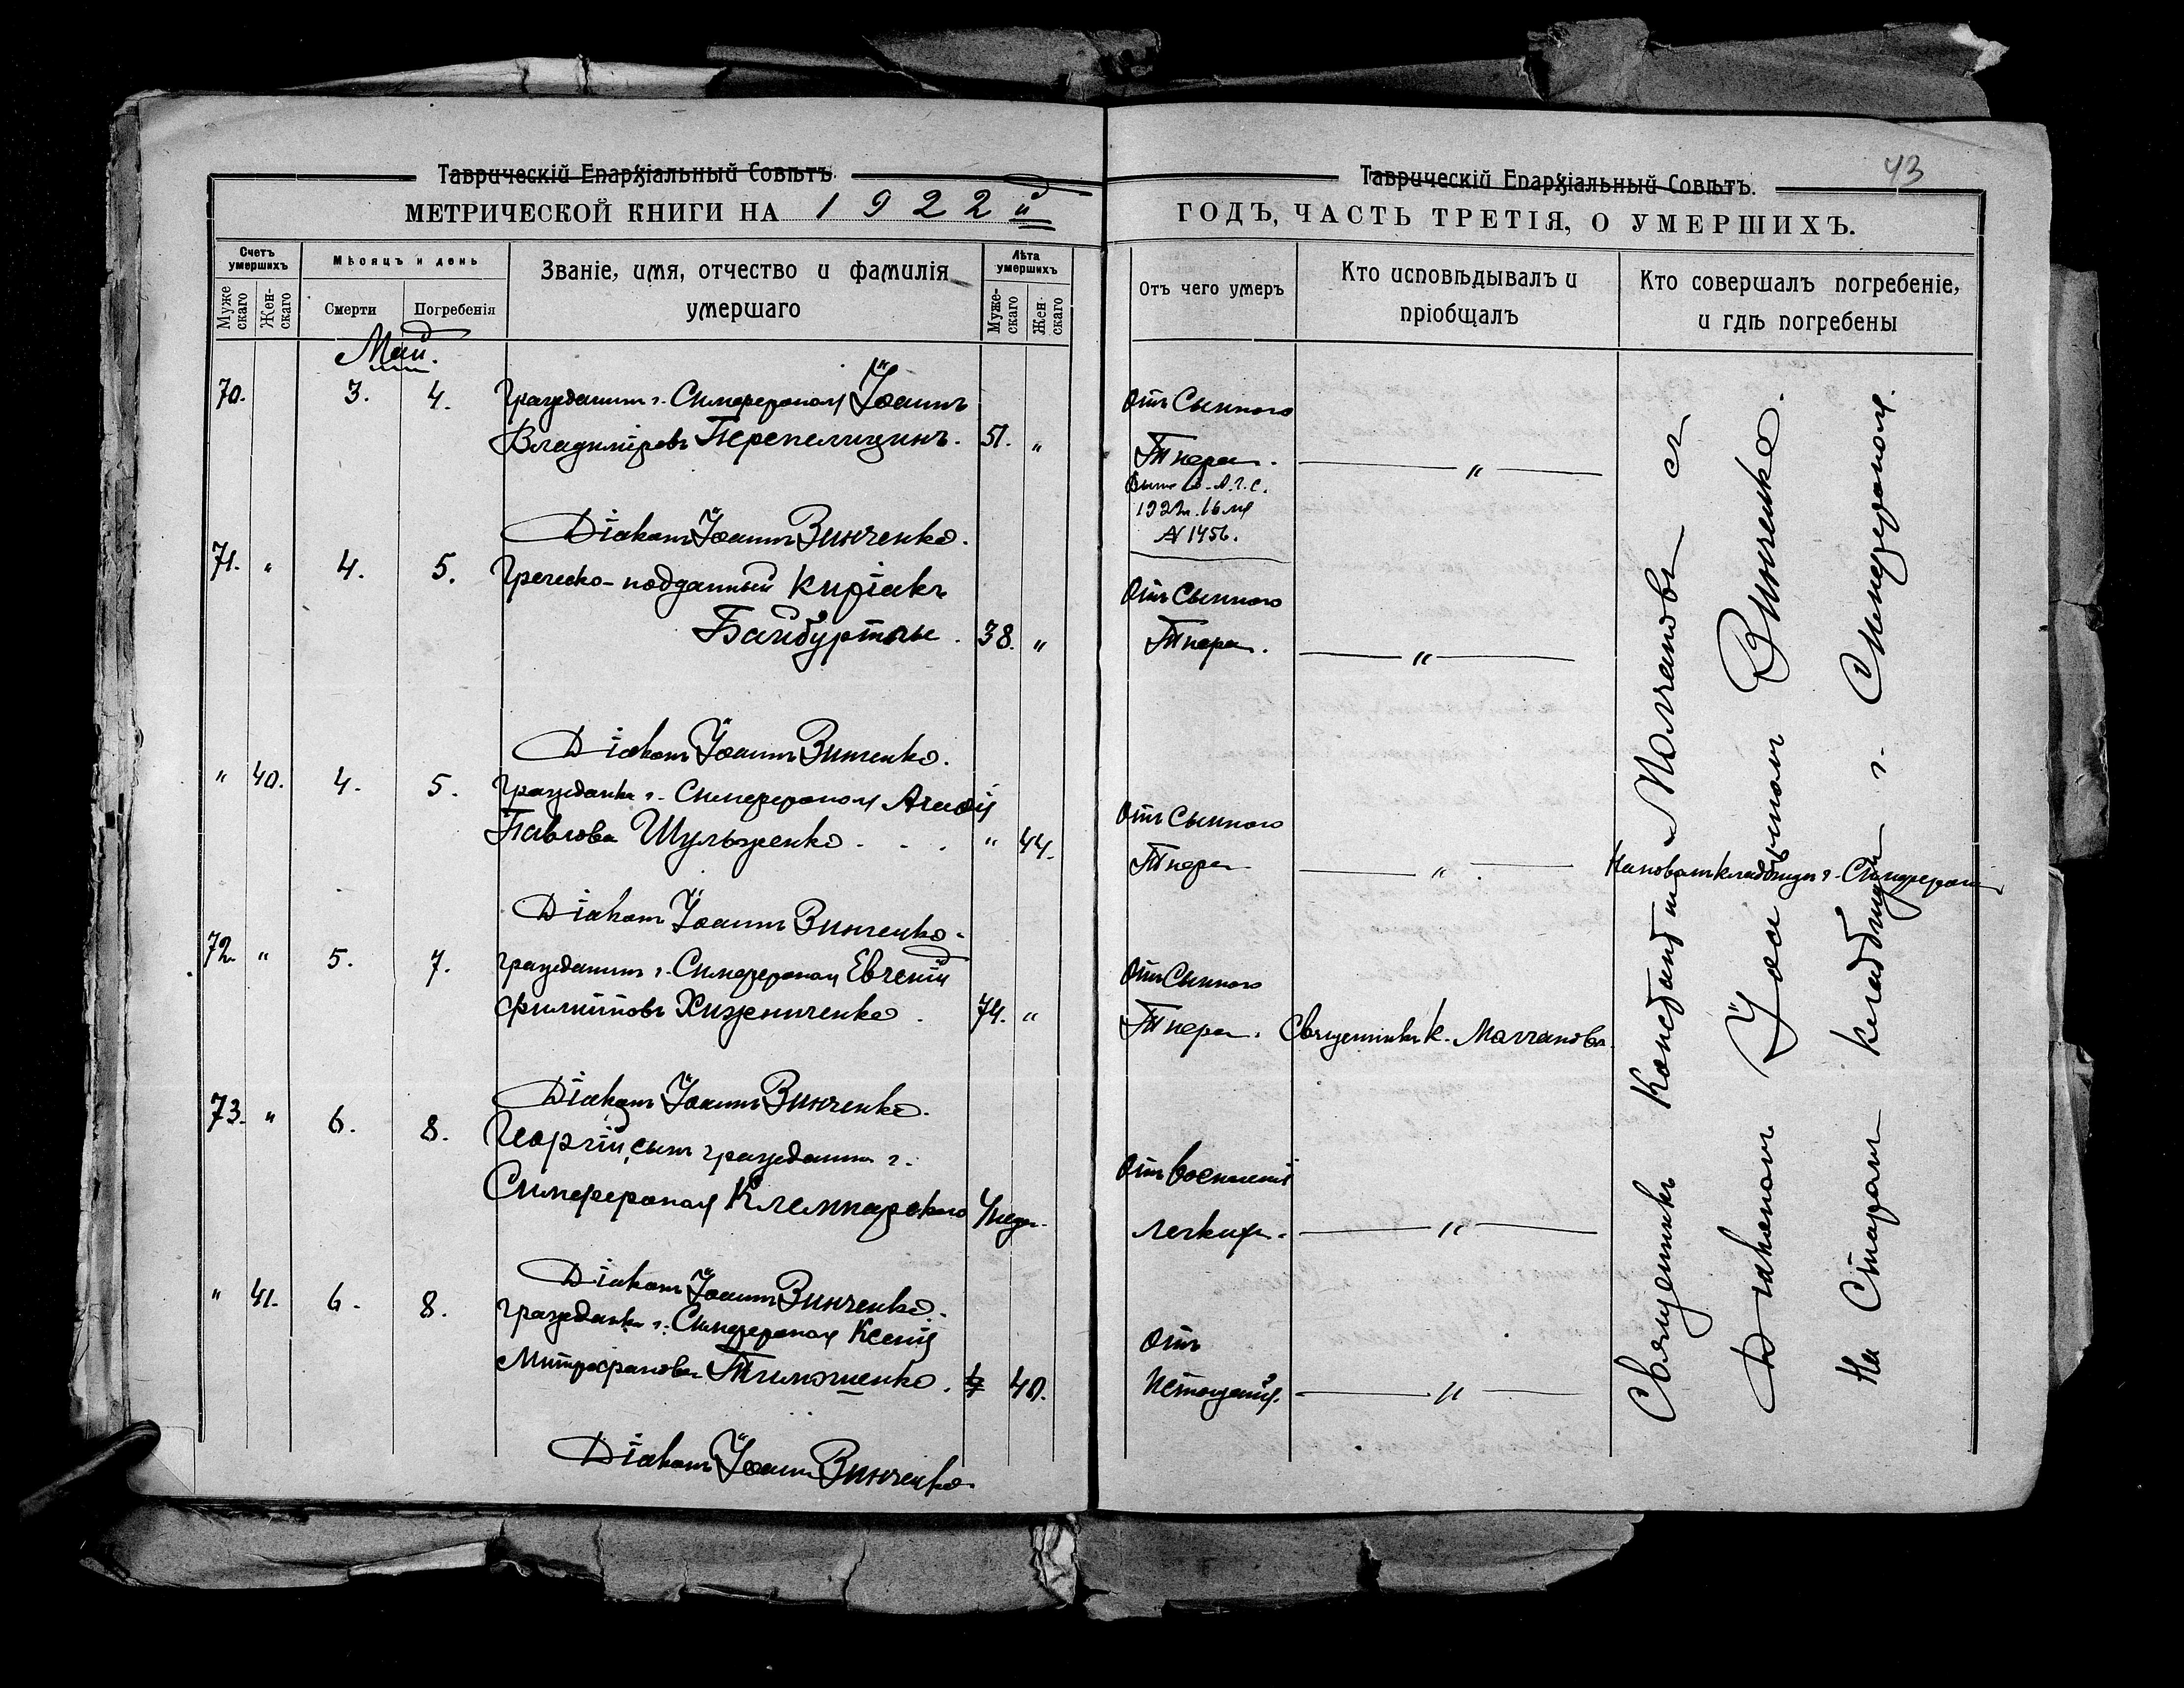 Таврическій Епархіальный Совѣтъ.
МЕТРИЧЕСКОЙ КНИГИ НА 1922 й
Счетъ умершихъ
Мѣсяцъ и день
Званіе, имя, отчество и фамилія умершаго
Лѣта умершихъ
Мужескаго
Женскаго
Смерти
Погребенія
Мужескаго
Женскаго
Май.
70. 3. 4. Гражданинъ г. Симферополя Іоаннъ
Владиміровъ Перепелицинъ. 51. "
Діаконъ Іоаннъ Винченко.
71. " 4. 5. Греческо-подданный Киріакъ
Байбуртлы. 38. "
Діаконъ Іоаннъ Винченко.
" 40. 4. 5. Гражданка г. Симферополя Агафія
Павлова Шульженко. " 44.
Діаконъ Іоаннъ Винченко.
72. " 5. 7. Гражданинъ г. Симферополя Евгеній
Филипповъ Хижниченко. 74. "
Діаконъ Іоаннъ Винченко.
73. " 6. 8. Георгій, сынъ гражданина г.
Симферополя Клемпарскаго 4 нед.
Діаконъ Іоаннъ Винченко.
" 41. 6. 8. Гражданка г. Симферополя Ксенія
Митрофанова Тимошенко. 40.
Діаконъ Іоаннъ Винченко.
43
Таврическій Епархіальный Совѣтъ.
ГОДЪ, ЧАСТЬ ТРЕТІЯ, О УМЕРШИХЪ.
Отъ чего умеръ
Кто исповѣдывалъ и пріобщалъ
Кто совершалъ погребеніе, и гдѣ погребены
Отъ Сыпного
Тифа. "
1922 г. 16
№ 1456.
Отъ Сыпного
Тифа. "
Отъ Сыпного
Тифа "
На новомъ кладбищѣ г. Симферополя
Отъ Сыпного
Тифа. Священникъ К. Молчановъ.
Отъ воспаленія
легкихъ. "
Отъ
истощенія. "
Священникъ Константинъ Молчановъ съ
Діакономъ Іоанномъ Винченко.
На Старомъ кладбищѣ г. Симферополя.